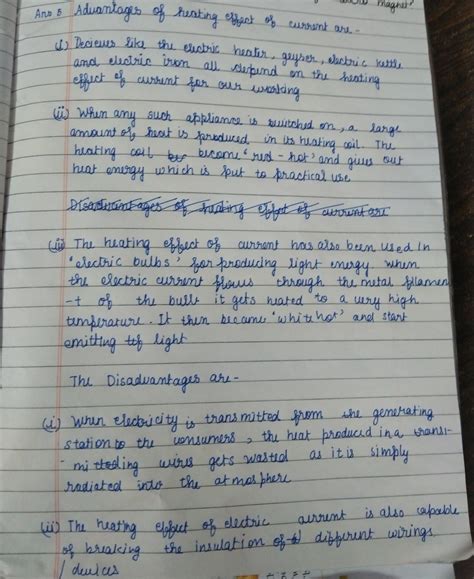 magnet
Ans 5 Advantages of heating effect of current are -
(i) Devices like the electric heater, geyser, electric kettle
and electric iron all depend on the heating
effect of current for our working
(ii) When any such appliance is switched on, a large
amount of heat is produced in its heating coil. The
heating coil become 'red-hot' and gives out
heat energy which is put to practical use
Disadvantages of heating effect of current are
(iii) The heating effect of current has also been used in
'electric bulbs' for producing light energy when
the electric current flows through the metal filamen
-t of the bulb it gets heated to a very high
temperature. It then became 'white hot' and start
emitting of light
The Disadvantages are -
(i) When electricity is transmitted from the generating
station to the consumers, the heat produced in a transi-
mitteding wires gets wasted as it is simply
radiated into the atmosphere
(ii) The heating effect of electric current is also capable
of breaking the insulation of different wirings
/ devices